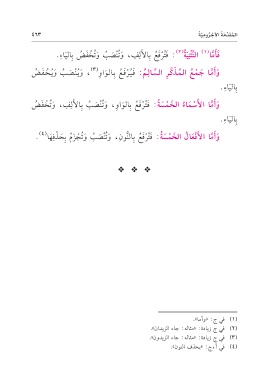 المُقَدِّمَةُ الآجُرُّومِيَّةُ ٤٦٣
فَأَمَّا(١) التَّثْنِيَةُ(٢): فَتُرْفَعُ بِالأَلِفِ، وَتُنْصَبُ وَتُخْفَضُ بِاليَاءِ.
وَأَمَّا جَمْعُ المُذَكَّرِ السَّالِمُ: فَيُرْفَعُ بِالوَاوِ(٣)، وَيُنْصَبُ وَيُخْفَضُ
بِاليَاءِ.
وَأَمَّا الأَسْمَاءُ الخَمْسَةُ: فَتُرْفَعُ بِالوَاوِ، وَتُنْصَبُ بِالأَلِفِ، وَتُخْفَضُ
بِاليَاءِ.
وَأَمَّا الأَفْعَالُ الخَمْسَةُ: فَتُرْفَعُ بِالنُّونِ، وَتُنْصَبُ وَتُجْزَمُ بِحَذْفِهَا(٤).
(١) في ج: «وأما».
(٢) في ج زيادة: «مثاله: جاء الزيدان».
(٣) في ج زيادة: «مثاله: جاء الزيدون».
(٤) في أ، ج: «بحذف النون».